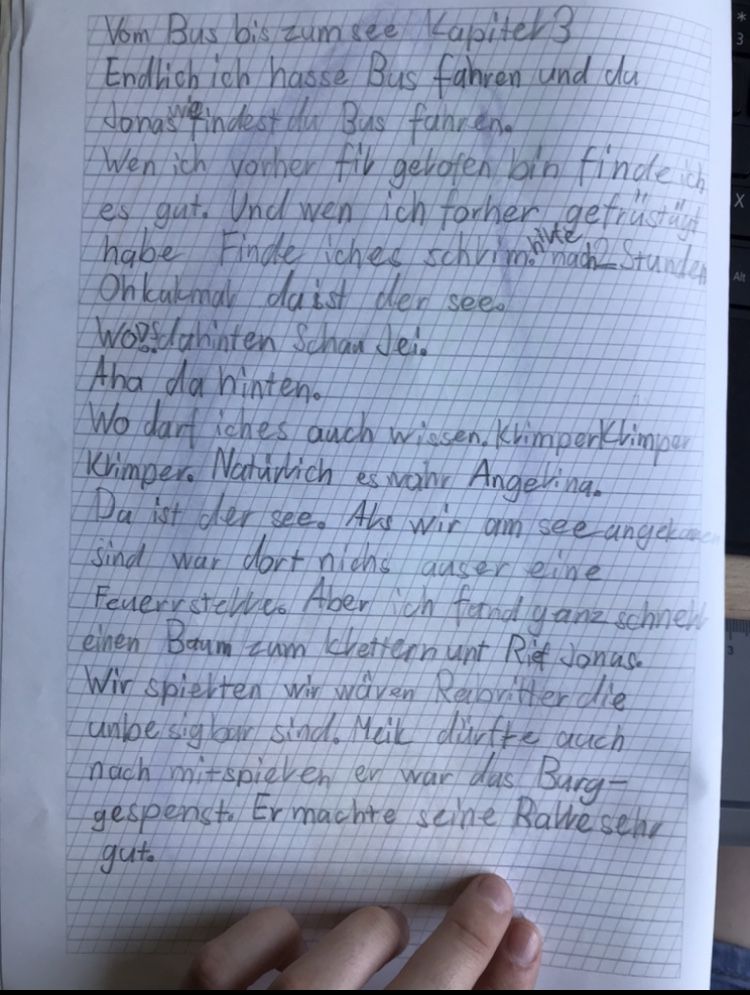 Vom Bus bis zum see Kapitel 3
Endlich ich hasse Bus fahren und du
Jonas wie findest du Bus fahren.
Wen ich vorher fil gelofen bin finde ich
es gut. Und wen ich forher gefrüstügt
habe Finde iches schlim. hite nach 2 Stunden
Oh kukmal da ist der see.
Wo? dahinten Schau Jei.
Aha da hinten.
Wo darf iches auch wissen. Klimper Klimper
Klimper. Natürlich es wahr Angelina.
Da ist der see. Als wir am see angekomen
sind war dort nichs auser eine
Feuerrstelle. Aber ich fand ganz schnell
einen Baum zum klettern unt Rif Jonas.
Wir spielten wir wären Rabritter die
unbesigbar sind. Meik dürfte auch
nach mitspielen er war das Burg-
gespenst. Er machte seine Ralle sehr
gut.